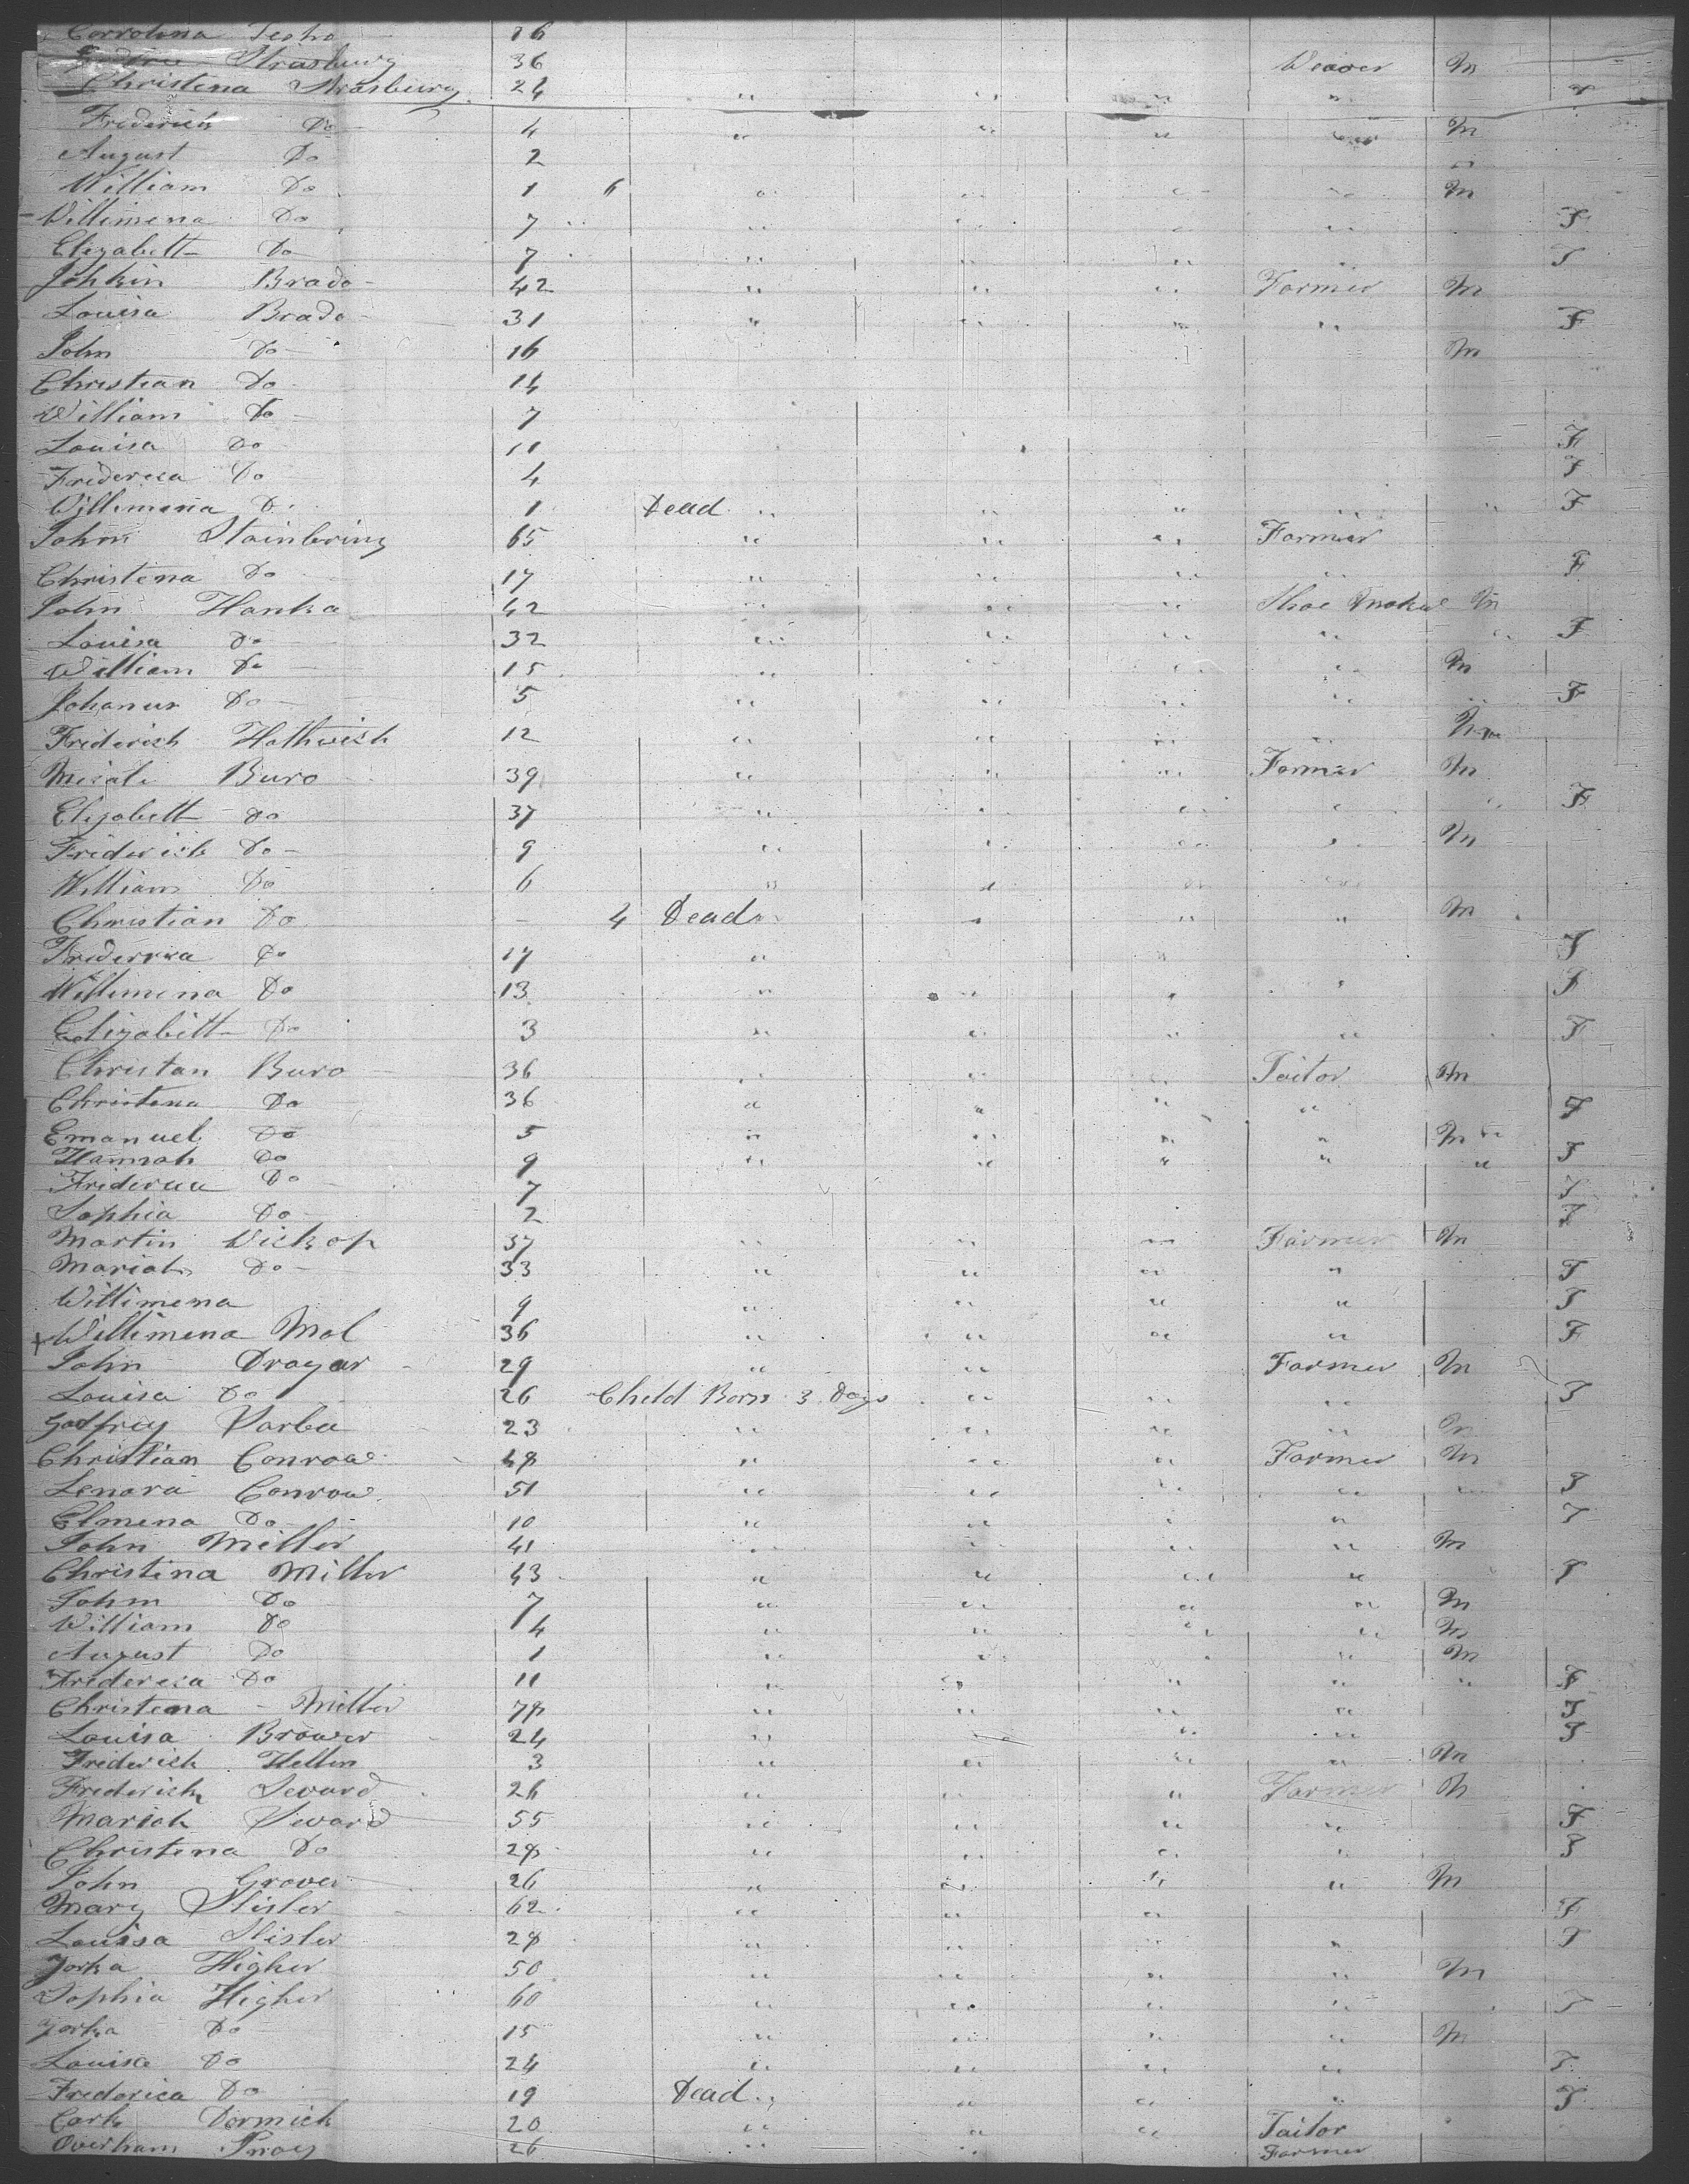 Corrolina Tesho 16
Strasburg 36 Weaver M
Christena Strasburg 24 " " " " F
Friderich Do 4 " " " " M
August Do 2 "
William Do 1 6 " " " " M
Willimena Do 7 " " " " F
Elizabett Do 7 " " " " F
Johkin Brado 42 " " " Farmer M
Louisa Brado 31 " " " " F
John Do 16 M
Christian Do 14
William Do 7
Louisa Do 11 F
Fridereca Do 4 F
Willimena Do 1 Dead " " " " " F
John Stainbring 65 " " " Farmer
Christena Do 17 " " " " F
John Hanka 42 " " " Shoe Maker M
Louisa Do 32 " " " " " F
William Do 15 " " " " M
Johanur Do 5 " " " " " F
Friderich Hathwish 12 " " " " M
Buro 39 " " " Farmer M
Elizabett Do 37 " " " " " F
Friderich Do 9 " " " " M
William Do 6 " " " "
Christian Do - 4 Dead " " " " M
Fridericca Do 17 " " F
Willimena Do 13 " " " " F
Elizabitt Do 3 " " " " F
Christan Buro 36 " " " Tailor M
Christena Do 36 " " " " F
Emanuel Do 5 " " " " M "
Hannah Do 9 " " " " " F
Do 7 F
Sophia Do 2 F
Martin Wickop 37 " " " Farmer M
Mariah Do 33 " " " " F
Willimena 9 " " " " F
+ Willimena Mol 36 " " " " F
John Dragar 29 " " Farmer M
Louisa Do 26 Child Born 3 Days " " " F
Godfrey Sarbu 23 " " " " M
Christian Conrow 48 " " " Farmer M
Lenora Conrow 51 " " " " " F
Elmena Do 10 " " " " F
John Miller 41 " " " " M
Christina Miller 43 " " " " F
John Do 7 " " " " M
William Do 4 " " " " M
August Do 1 " " " " M
Fridereca Do 11 " " " " " F
Christena Miller 78 " " " " F
Louisa Brower 24 " " " " F
Friderich Hellen 3 " " " " M
Friderich Seward 26 " " " Farmer M
Mariah Seward 55 " " " " F
Christena Do 28 " " " " F
John Grover 26 " " " " M
Mary Slisler 62 " " " F
Louisa Slisler 28 " " " " F
Yorka Higher 50 " " " " M
Sophia Higher 60 " " " " F
Yorka Do 15 " " " " M
Louisa Do 24 " " " " F
Frederica Do 19 Dead " " " " F
Cark Dormick 20 " " " Tailor
Overham 26 " " Farmer